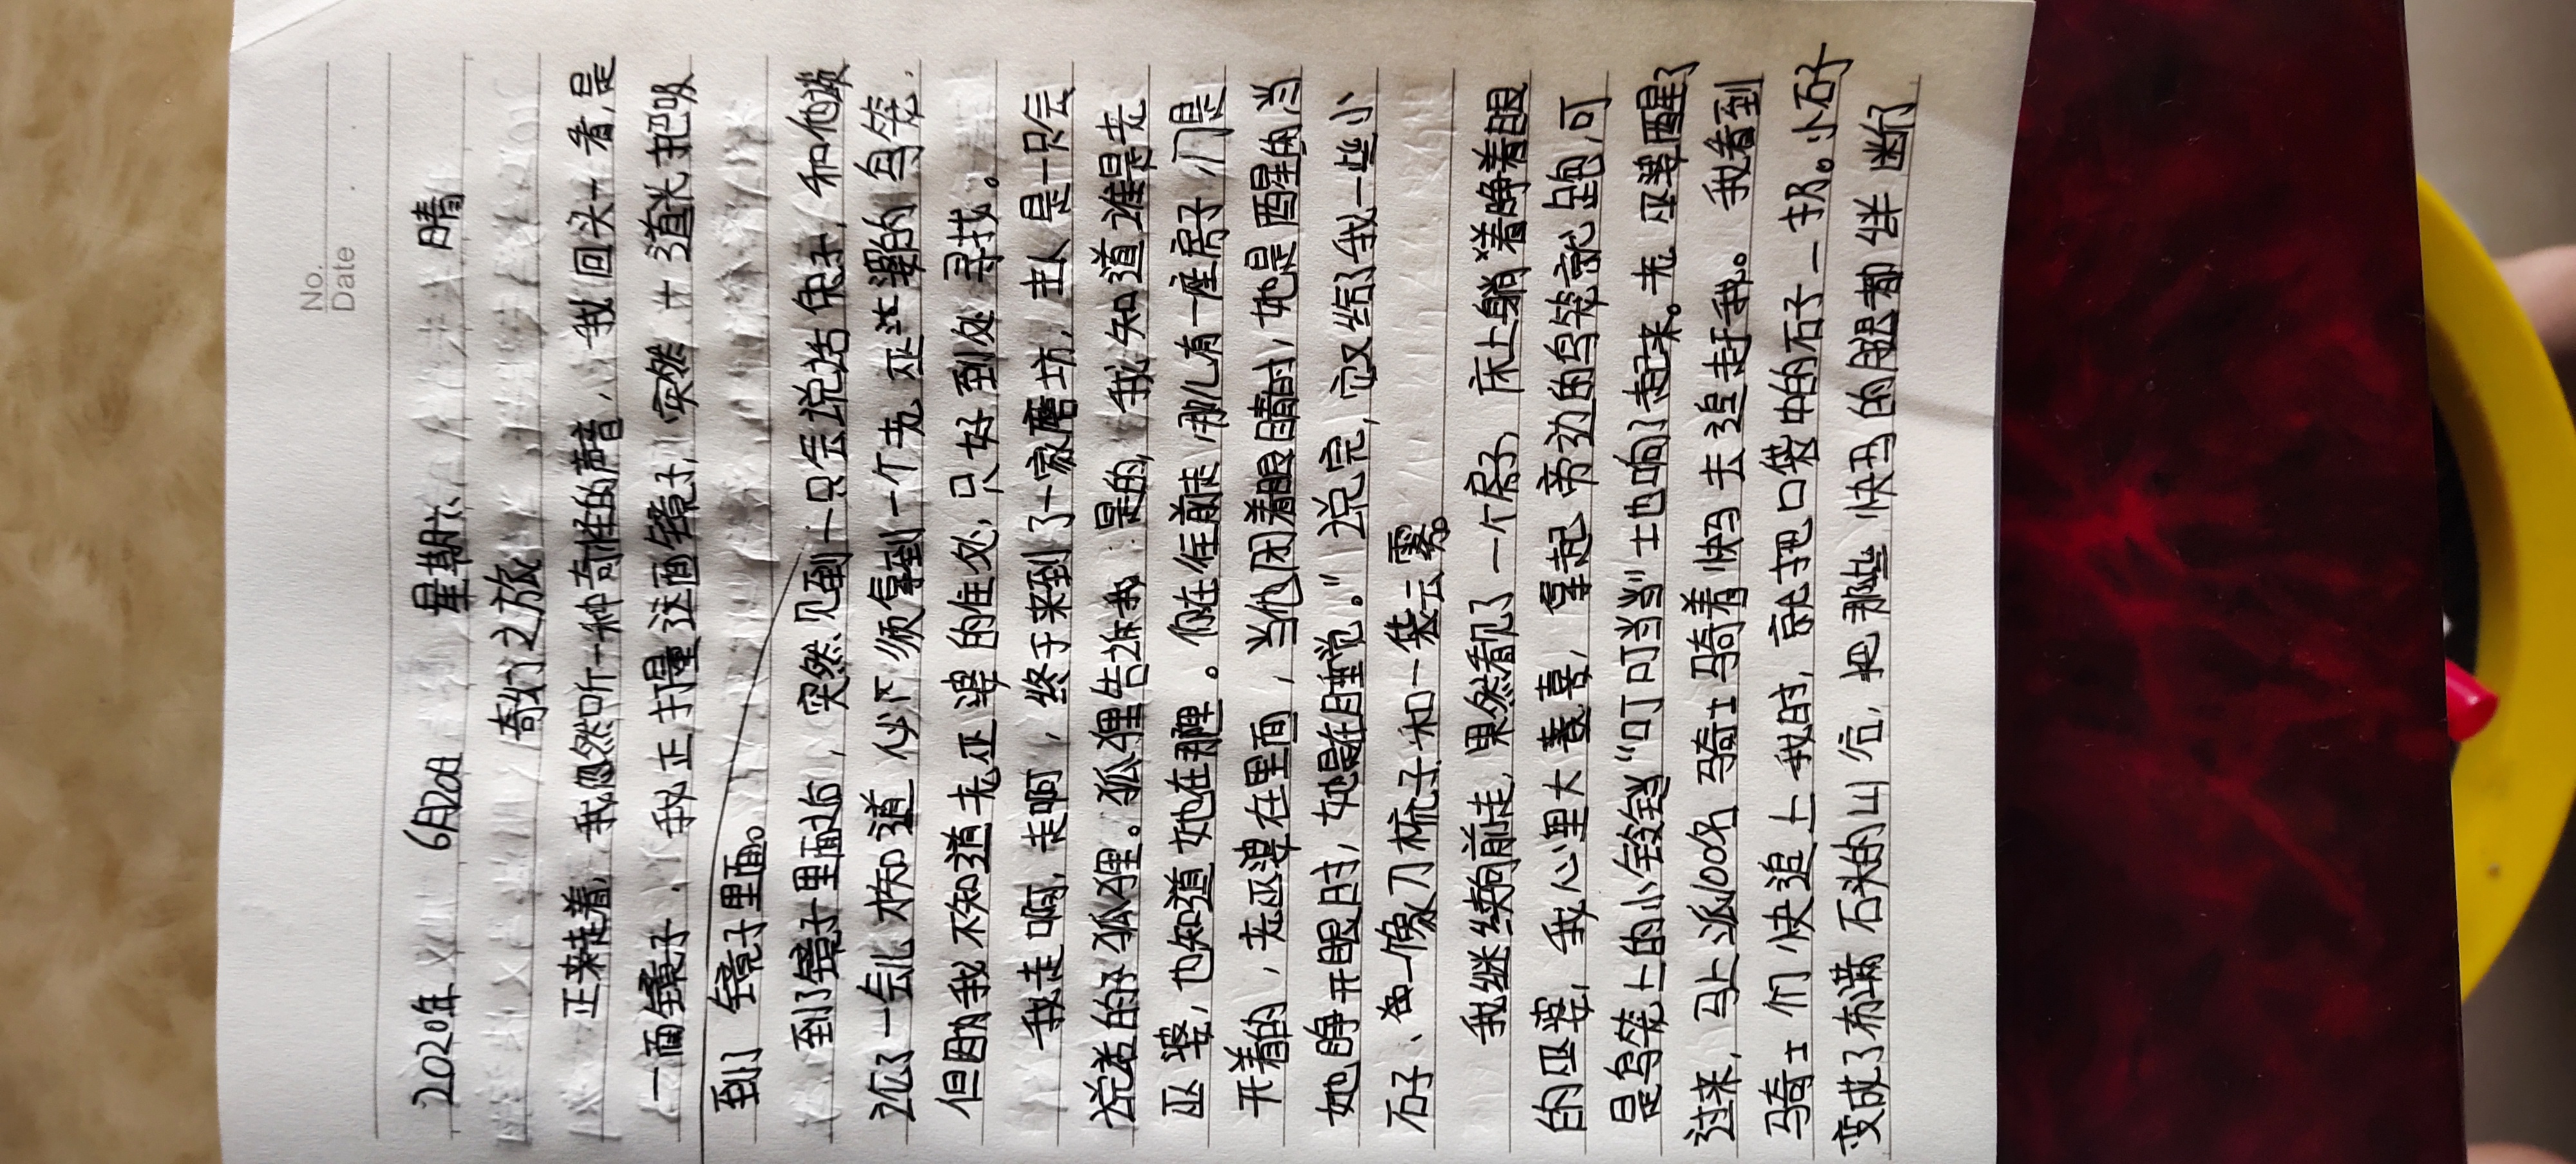 No.
Date
2020年 6月20日 星期六 晴
奇幻之旅
正来走着，我忽然听一种奇怪的声音，我回头一看，是
一面镜子，我正打量这面镜子，突然一道光把吸
到了镜子里面。
到了镜子里面后，突然见到一只会说话兔子，和他谈
了一会儿才知道必须拿到一个老巫婆的鸟笼．
但我不知道老巫婆的住处，只好到处寻找。
我走啊，走啊，终于来到了一家磨坊，主人是一只会
说话的狐狸。狐狸告诉我：是的，我知道谁是老
巫婆，也知道她在那哩。你在往前走，那儿有一座房子，门是
开着的，老巫婆在里面，当他闭着眼睛时，她是醒的，当
她睁开眼时，她是在睡觉。”说完，它又给了我一些小
石子、一像刀梳子和一袋云雾。
我继续向前走，果然看见了一个房子，床上躺着睁着眼
的巫婆，我心里大喜，拿起旁边的鸟笼就跑，可
是鸟笼上的小铃铛“叮叮当当”也响了起来。老巫婆醒了
过来，马上派100名骑士骑着快马去追赶我。我看到
骑士们快追上我时，就把口袋中的石子一扔。小石子
变成了布满石头的山谷，把那些快马的腿都绊断了